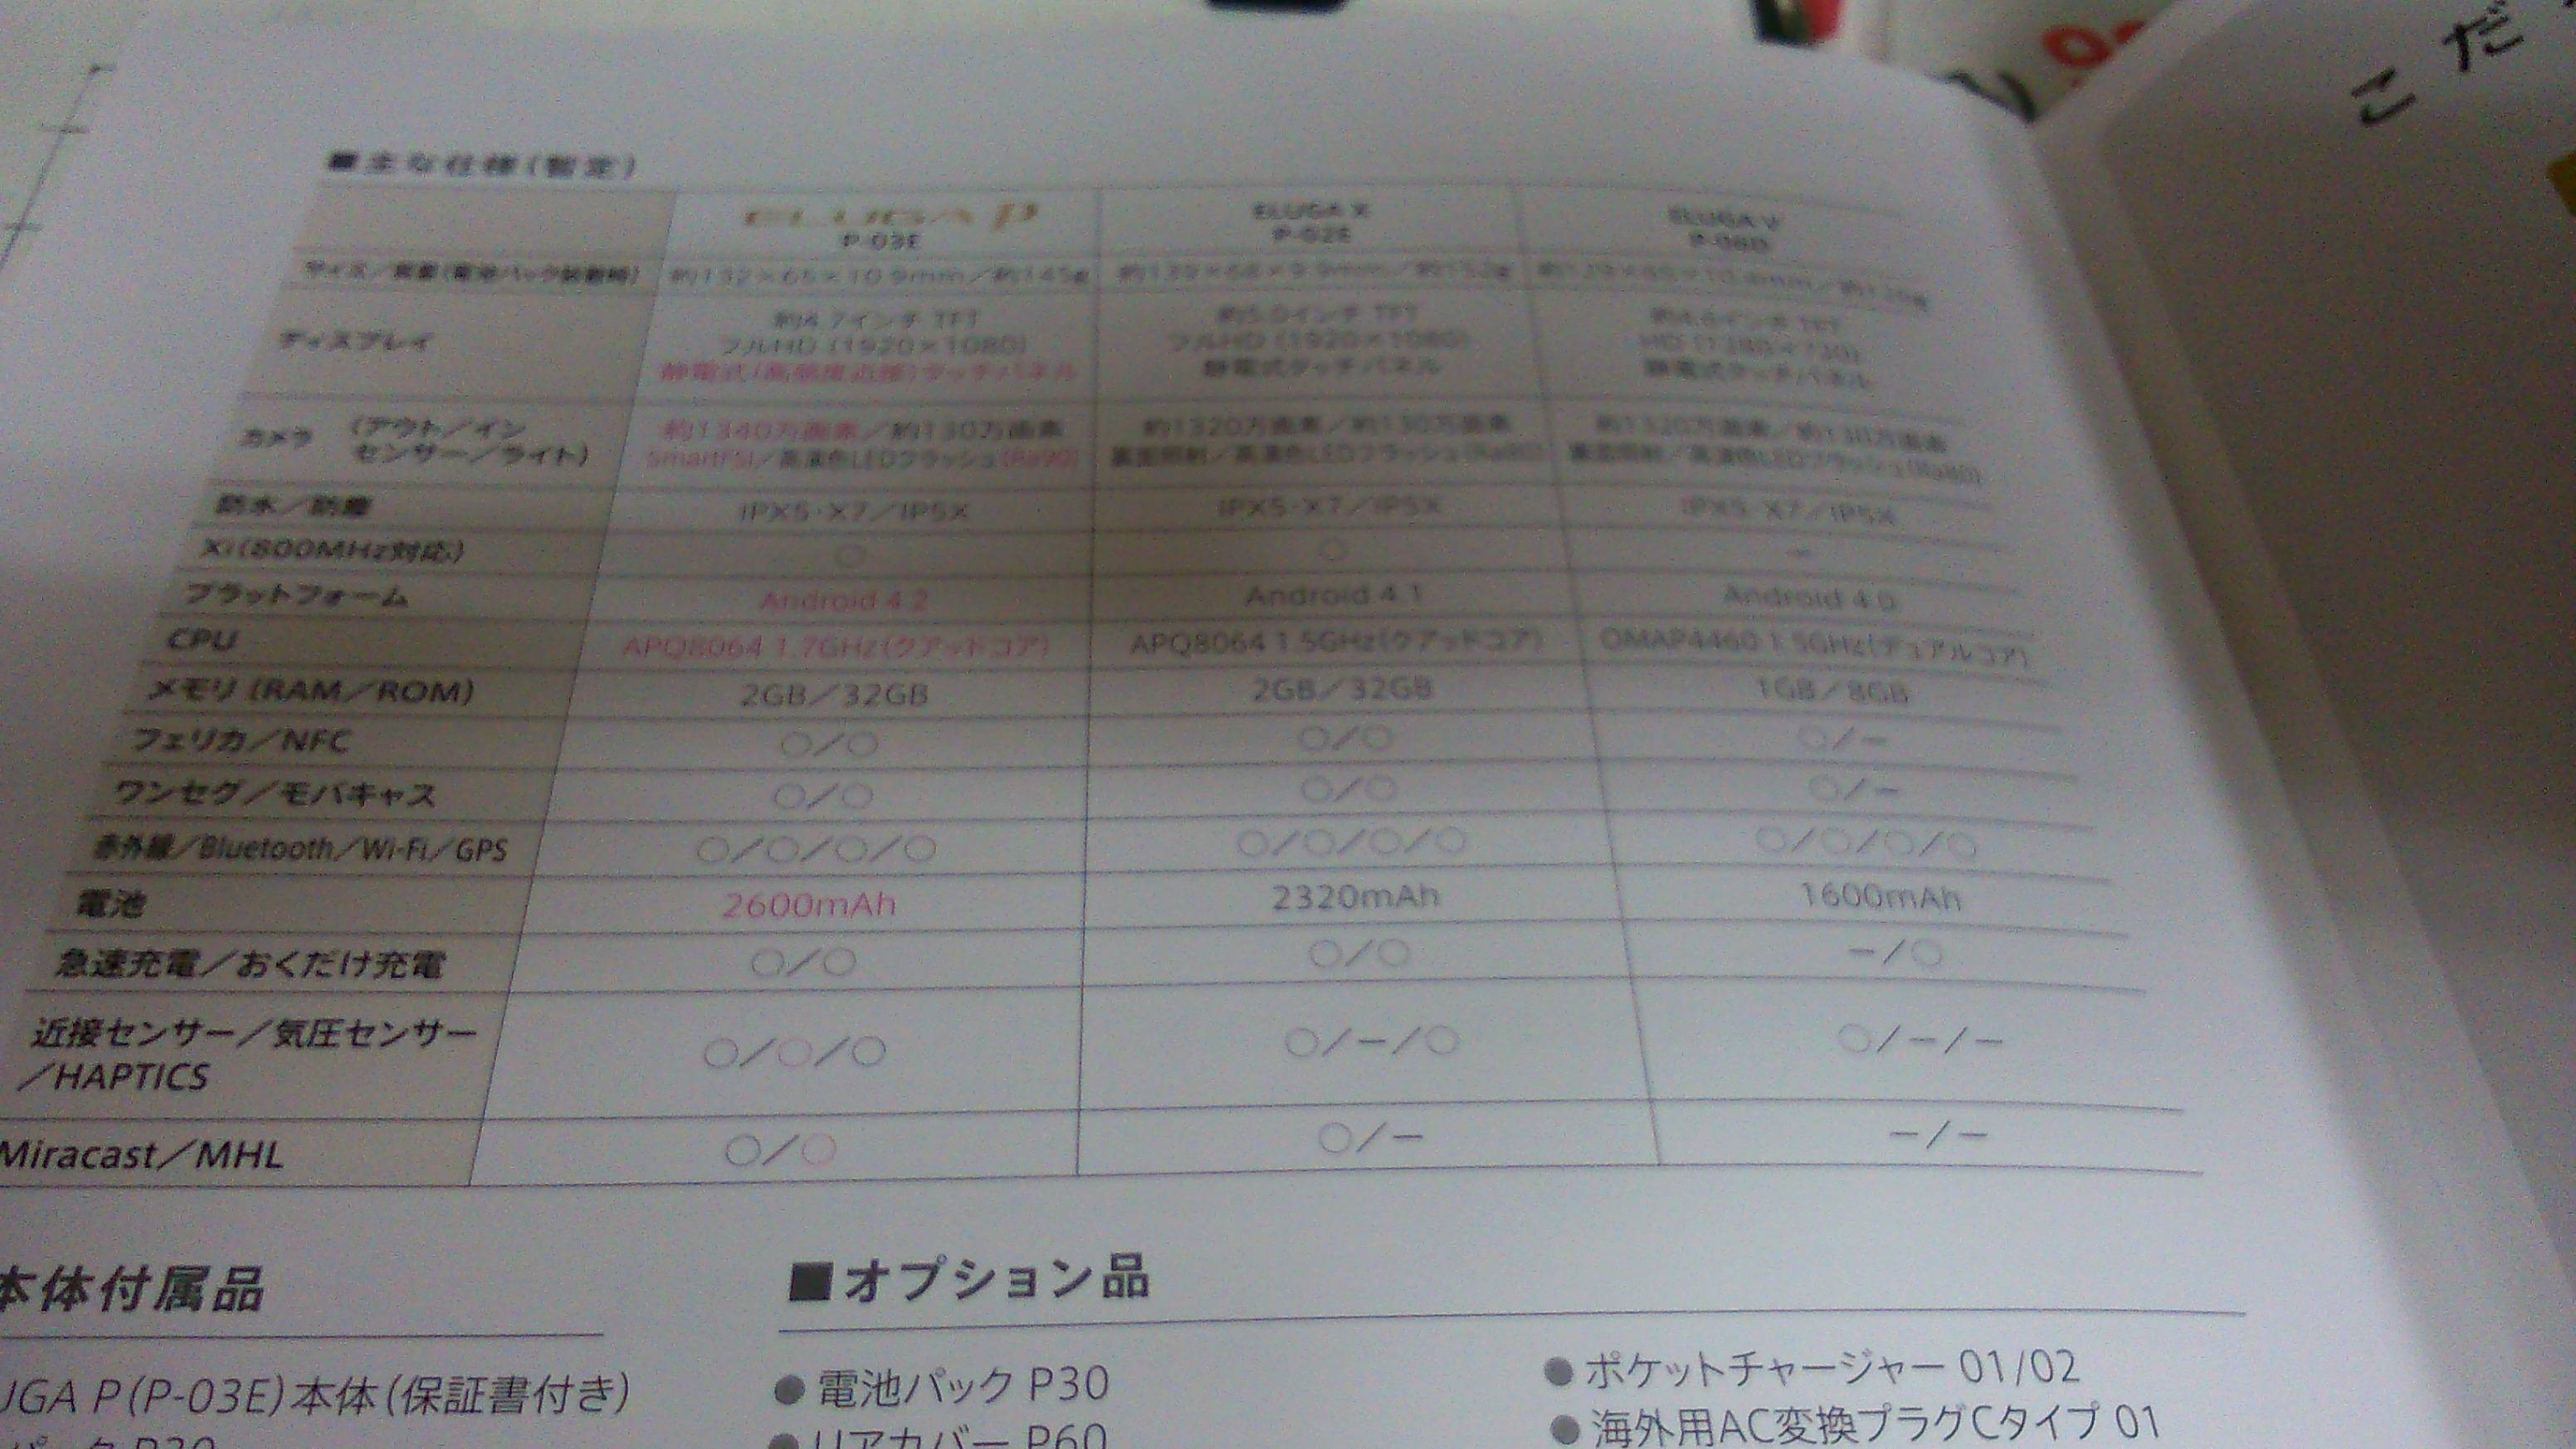 ■主な仕様(暫定)
ELUGA P
P-03E
ELUGA X
P-02E
ELUGA V
P-06D
サイズ/質量(電池パック装着時) 約132×65×10.9mm/約145g 約139×68×9.9mm/約152g
ディスプレイ
約4.7インチ TFT
フルHD (1920×1080)
静電式(高感度近接)タッチパネル
約5.0インチ TFT
フルHD (1920×1080)
静電式タッチパネル
約4.6インチ TFT
HD (1280×720)
静電式タッチパネル
カメラ (アウト/イン
センサー/ライト)
約1340万画素/約130万画素
SmartFSI/高演色LEDフラッシュ(Ra90)
約1320万画素/約130万画素
裏面照射/高演色LEDフラッシュ(Ra80)
約1320万画素/約130万画素
裏面照射/高演色LEDフラッシュ(Ra80)
防水/防塵 IPX5・X7/IP5X IPX5・X7/IP5X IPX5・X7/IP5X
Xi(800MHz対応) ○ ○ −
プラットフォーム Android 4.2 Android 4.1 Android 4.0
CPU APQ8064 1.7GHz(クアッドコア) APQ8064 1.5GHz(クアッドコア) OMAP4460 1.5GHz(デュアルコア)
メモリ (RAM/ROM) 2GB/32GB 2GB/32GB 1GB/8GB
フェリカ/NFC ○/○ ○/○ ○/−
ワンセグ/モバキャス ○/○ ○/○ ○/−
赤外線/Bluetooth/Wi-Fi/GPS ○/○/○/○ ○/○/○/○ ○/○/○/○
電池 2600mAh 2320mAh 1600mAh
急速充電/おくだけ充電 ○/○ ○/○ −/○
近接センサー/気圧センサー
/HAPTICS
○/○/○ ○/−/○ ○/−/−
Miracast/MHL ○/○ ○/− −/−
本体付属品
UGA P(P-03E)本体(保証書付き)
■オプション品
●電池パック P30
●リアカバー P60
●ポケットチャージャー 01/02
●海外用AC変換プラグCタイプ 01
こだ